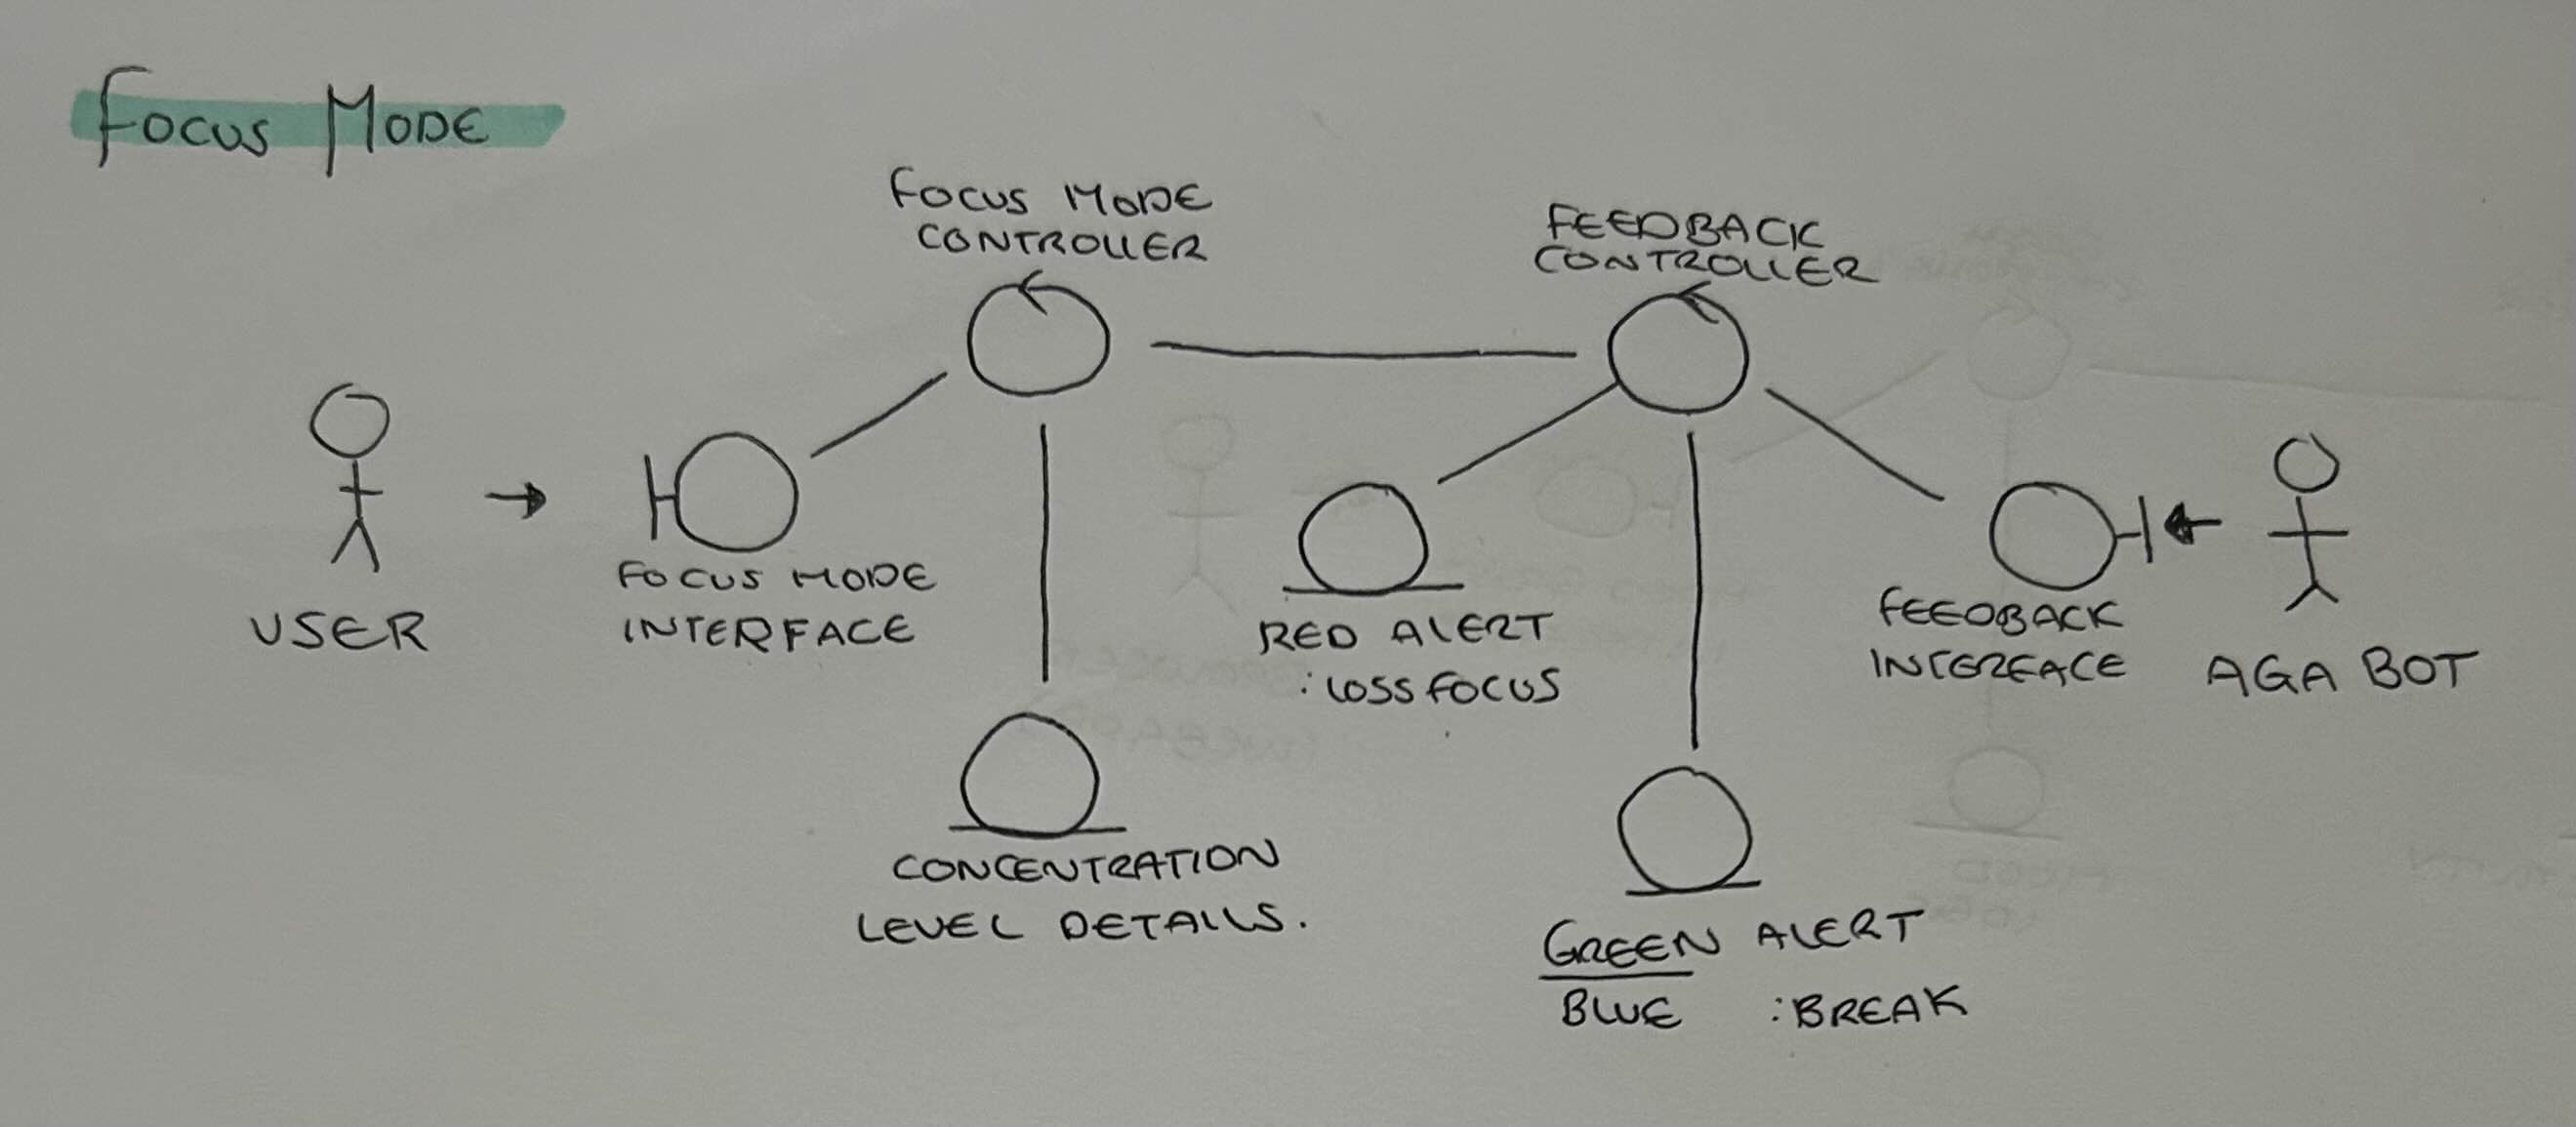 Focus Mode
FOCUS MODE
CONTROLLER
FEEDBACK
CONTROLLER
USER
FOCUS MODE
INTERFACE
RED ALERT
: LOSS FOCUS
FEEDBACK
INTERFACE
AGA BOT
CONCENTRATION
LEVEL DETAILS.
GREEN ALERT
BLUE : BREAK